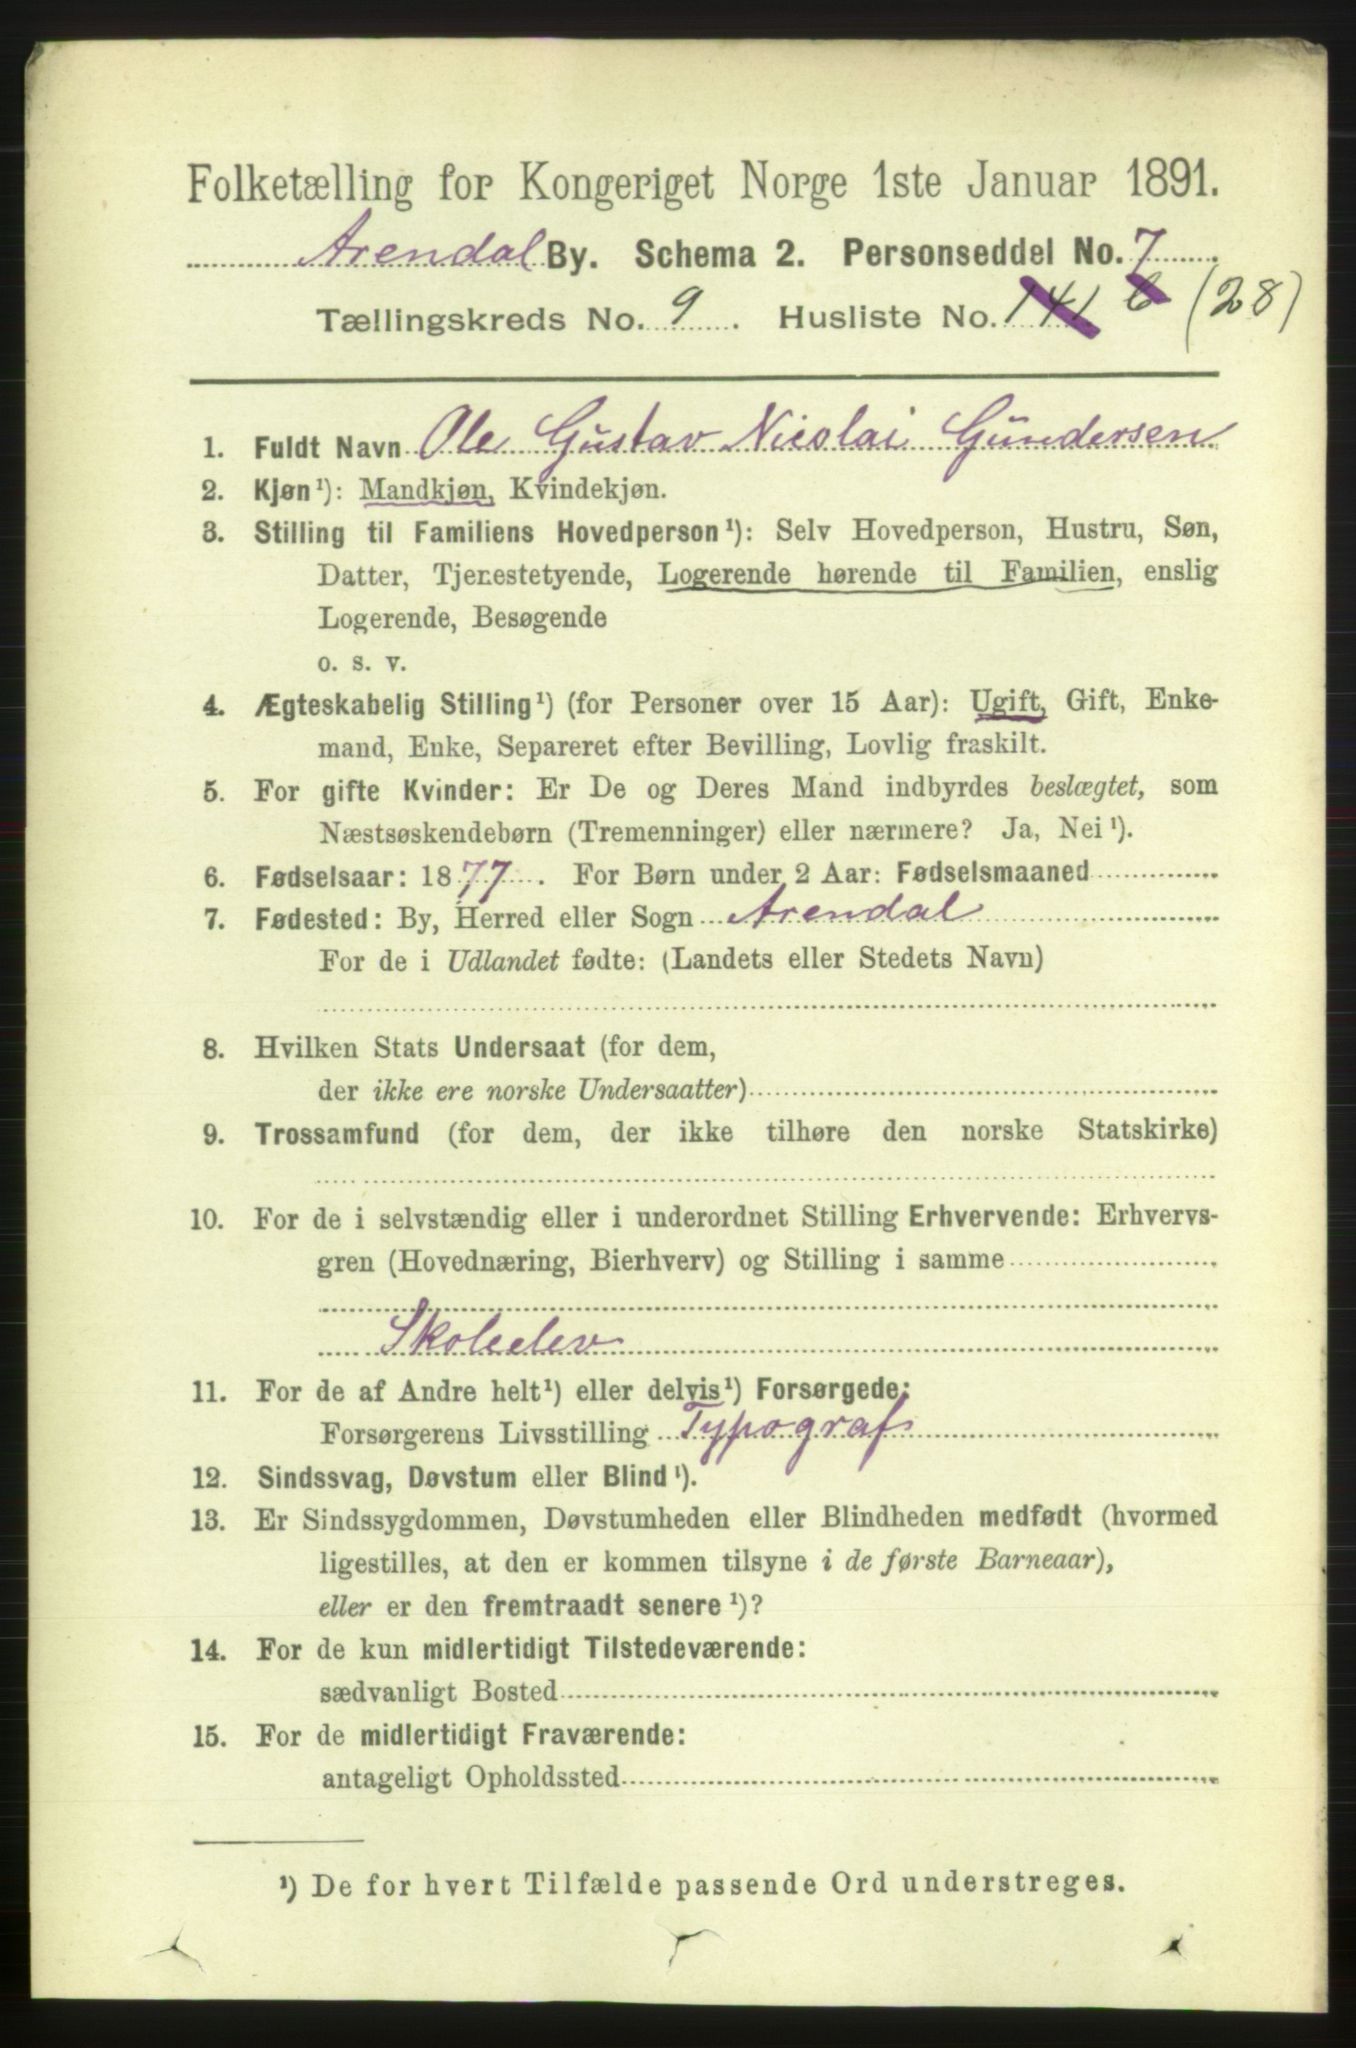 Folketælling for Kongeriget Norge 1ste Januar 1891.
Arendal By. Schema 2. Personseddel No. 7
Tællingskreds No. 9. Husliste No. 141 6 (28)
1. Fuldt Navn Ole Gustav Nicolai Gundersen
2. Kjøn¹): Mandkjøn, Kvindekjøn.
3. Stilling til Familiens Hovedperson¹): Selv Hovedperson, Hustru, Søn,
Datter, Tjenestetyende, Logerende hørende til Familien, enslig
Logerende, Besøgende
o. s. v.
4. Ægteskabelig Stilling¹) (for Personer over 15 Aar): Ugift, Gift, Enke-
mand, Enke, Separeret efter Bevilling, Lovlig fraskilt.
5. For gifte Kvinder: Er De og Deres Mand indbyrdes beslægtet, som
Næstsøskendebørn (Tremenninger) eller nærmere? Ja, Nei¹).
6. Fødselsaar: 1877. For Børn under 2 Aar: Fødselsmaaned
7. Fødested: By, Herred eller Sogn Arendal
For de i Udlandet fødte: (Landets eller Stedets Navn)
8. Hvilken Stats Undersaat (for dem,
der ikke ere norske Undersaatter)
9. Trossamfund (for dem, der ikke tilhøre den norske Statskirke)
10. For de i selvstændig eller i underordnet Stilling Erhvervende: Erhvervs-
gren (Hovednæring, Bierhverv) og Stilling i samme
Skoleelev
11. For de af Andre helt¹) eller delvis¹) Forsørgede:
Forsørgerens Livsstilling Typograf
12. Sindssvag, Døvstum eller Blind¹).
13. Er Sindssygdommen, Døvstumheden eller Blindheden medfødt (hvormed
ligestilles, at den er kommen tilsyne i de første Barneaar),
eller er den fremtraadt senere¹)?
14. For de kun midlertidigt Tilstedeværende:
sædvanligt Bosted
15. For de midlertidigt Fraværende:
antageligt Opholdssted
¹) De for hvert Tilfælde passende Ord understreges.